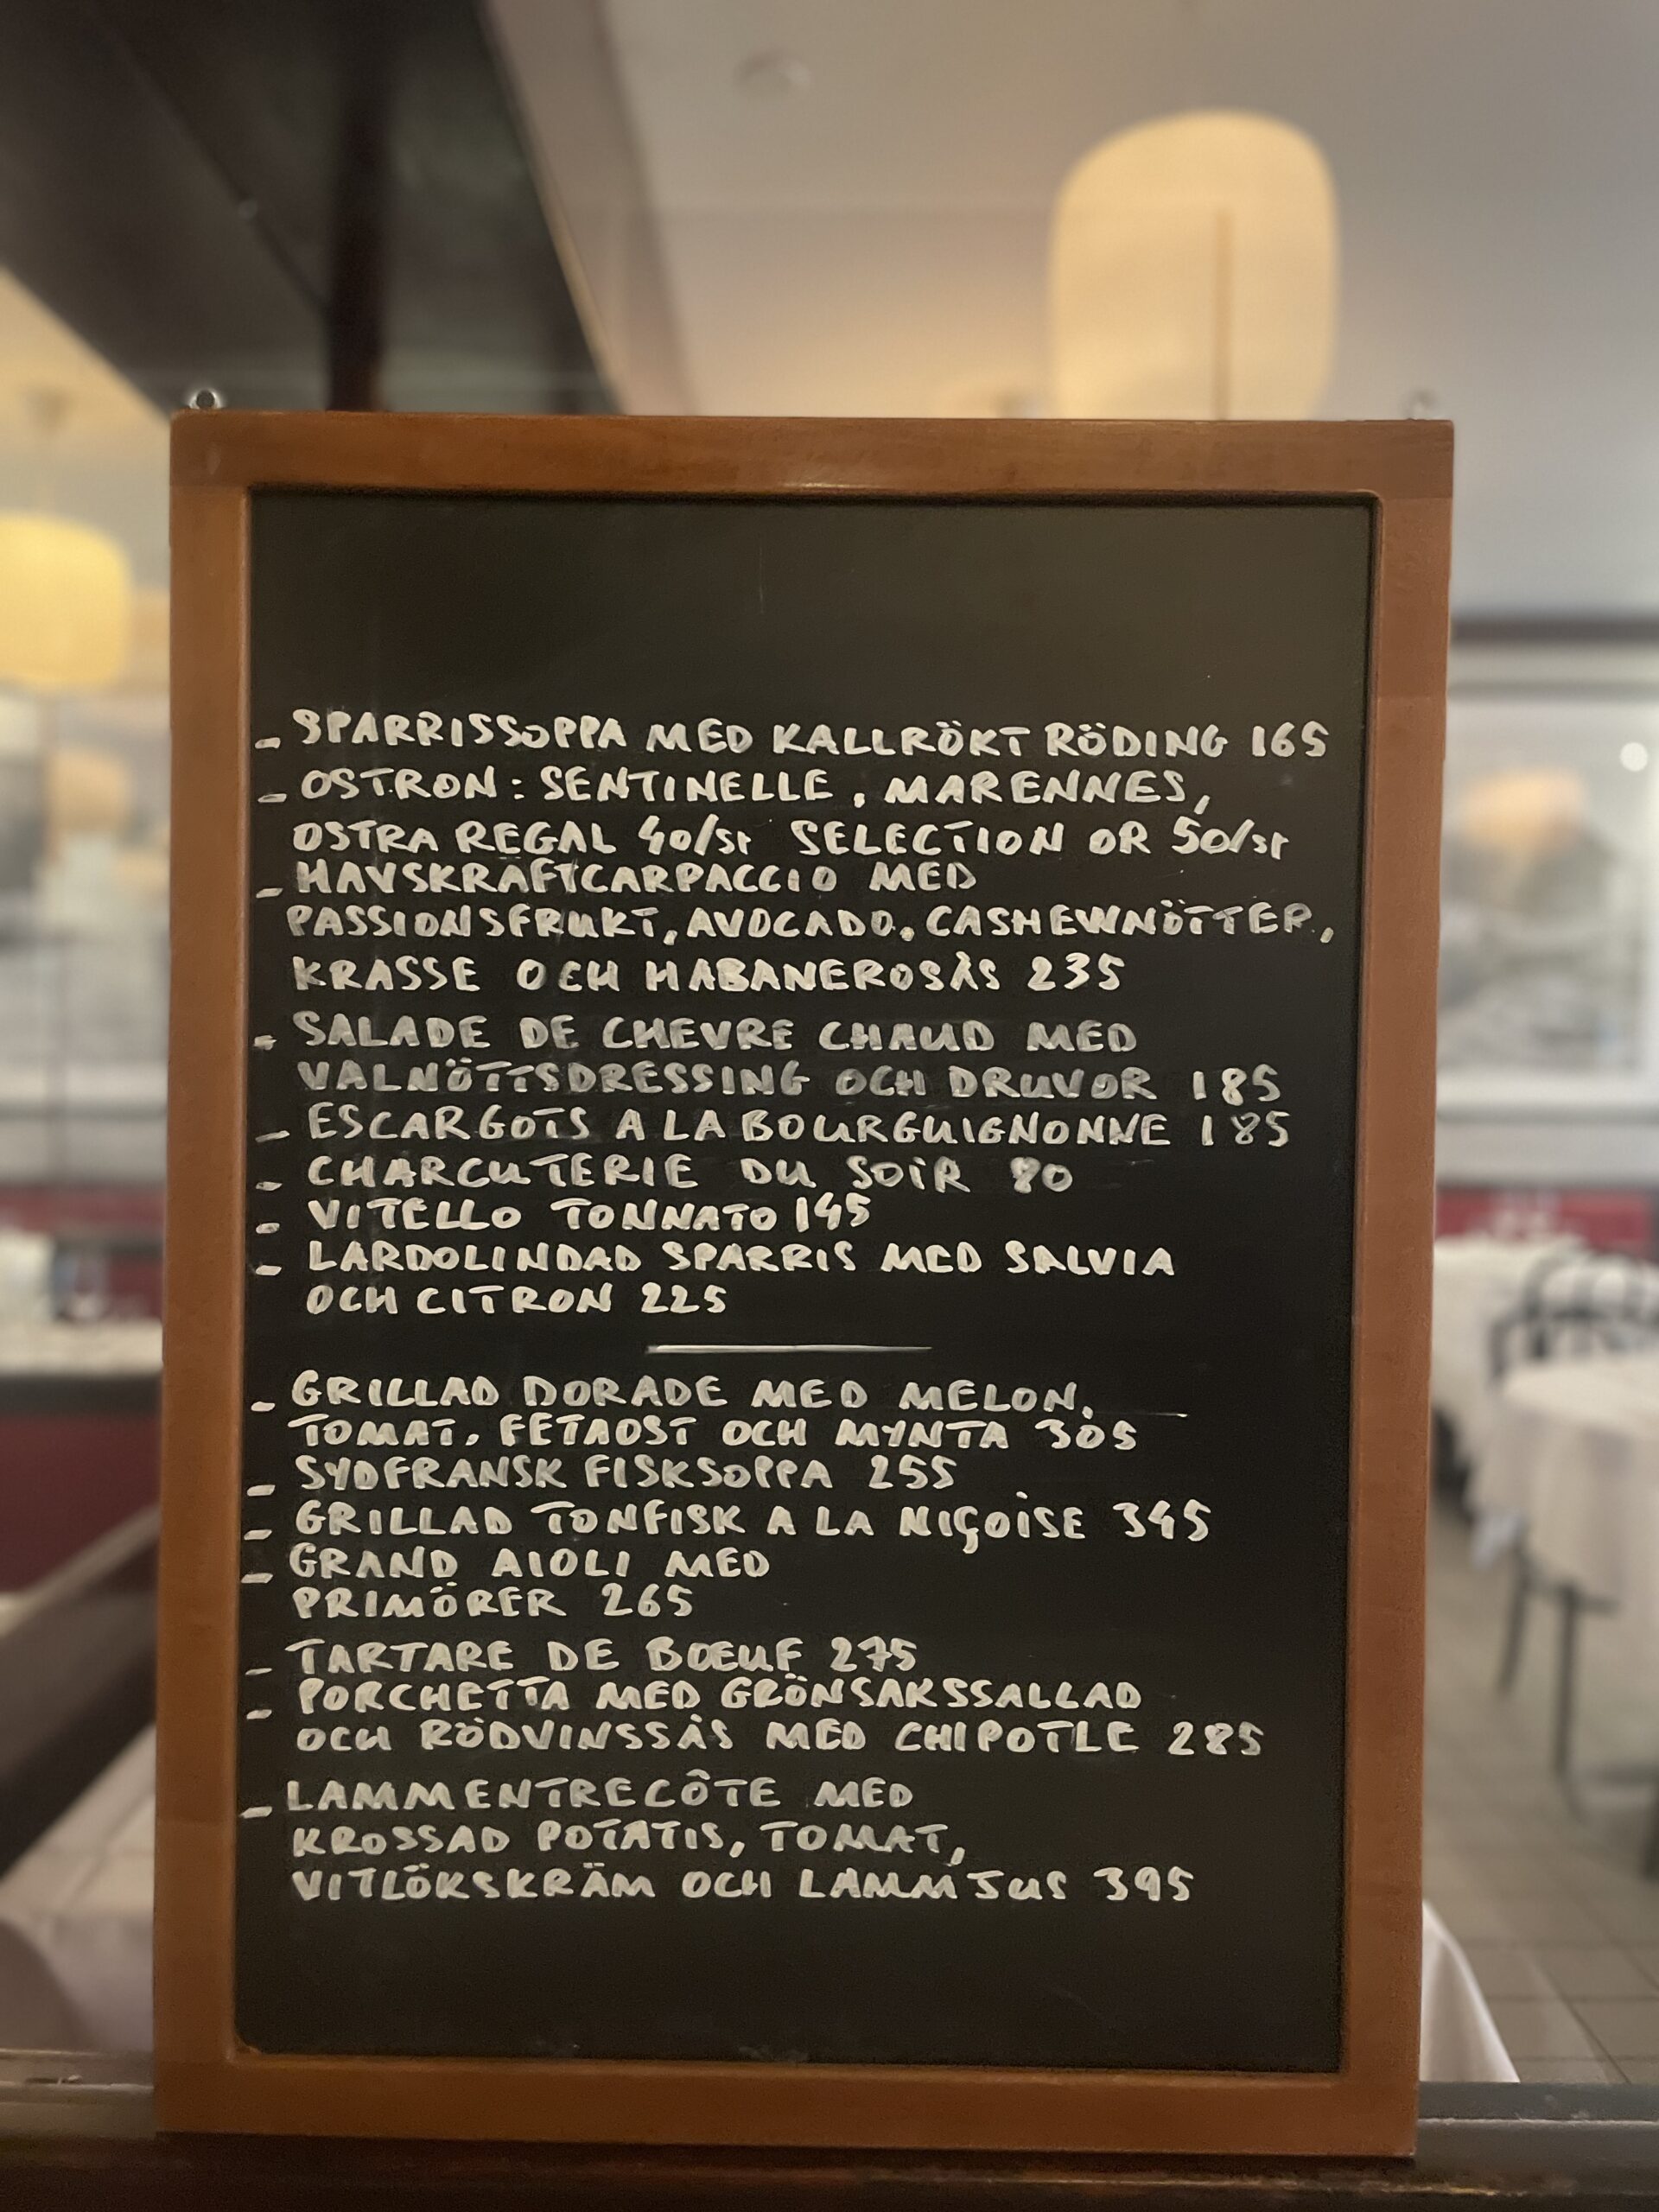 - SPARRISSOPPA MED KALLRÖKT RÖDING 165
- OSTRON: SENTINELLE, MARENNES,
OSTRA REGAL 40/st SELECTION OR 50/st
- HAVSKRÄFTCARPACCIO MED
PASSIONSFRUKT, AVOCADO, CASHEWNÖTTER,
KRASSE OCH HABANEROSÅS 235
- SALADE DE CHEVRE CHAUD MED
VALNÖTTSDRESSING OCH DRUVOR 185
- ESCARGOTS A LA BOURGUIGNONNE 185
- CHARCUTERIE DU SOIR 80
- VITELLO TONNATO 145
- LARDOLINDAD SPARRIS MED SALVIA
OCH CITRON 225
- GRILLAD DORADE MED MELON,
TOMAT, FETAOST OCH MYNTA 305
- SYDFRANSK FISKSOPPA 255
- GRILLAD TONFISK A LA NIÇOISE 345
- GRAND AIOLI MED
PRIMÖRER 265
- TARTARE DE BŒUF 275
- PORCHETTA MED GRÖNSAKSSALLAD
OCH RÖDVINSSÅS MED CHIPOTLE 285
- LAMMENTRECÔTE MED
KROSSAD POTATIS, TOMAT,
VITLÖKSKRÄM OCH LAMMJUS 395